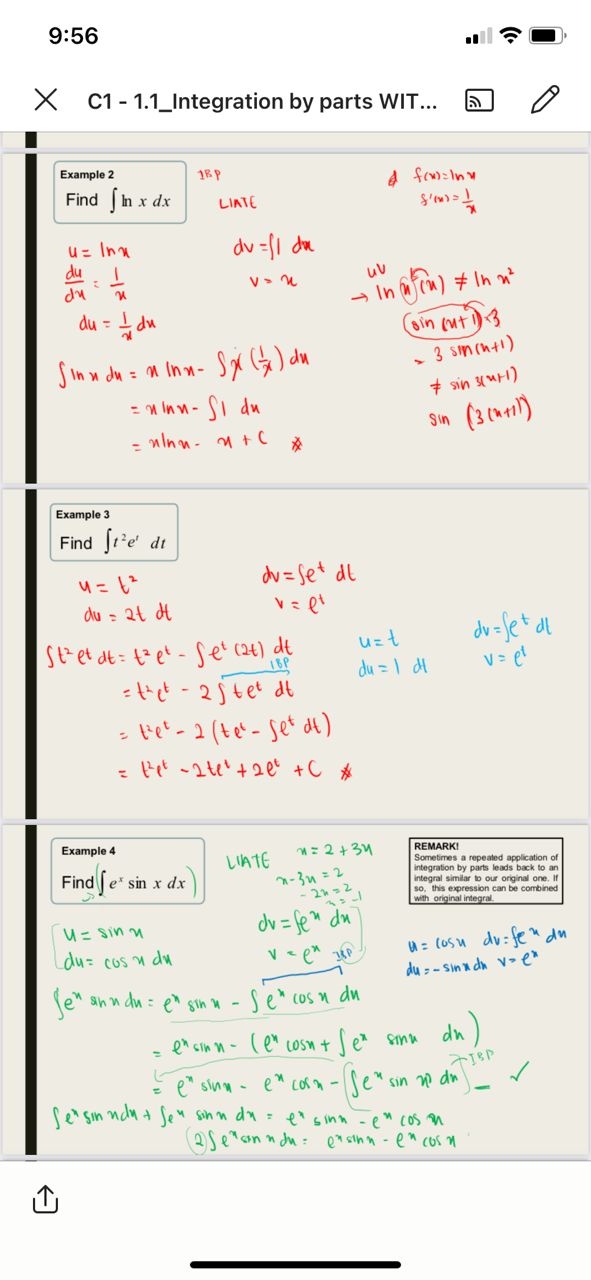 9:56
C1 - 1.1_Integration by parts WIT...
Example 2
Find ∫ ln x dx
IBP
LIATE
f(x)=lnx
f'(x)=1/x
u = lnx
du/dx = 1/x
du = 1/x dx
dv=∫1 dx
v = x
uv
→ ln(x)(x) ≠ ln x²
sin (x+1)·3
= 3 sin(x+1)
≠ sin 3(x+1)
sin (3(x+1))
∫lnx dx = x lnx - ∫x(1/x) dx
= x lnx - ∫1 dx
= xlnx - x + C
Example 3
Find ∫t²eᵗ dt
u = t²
du = 2t dt
dv=∫eᵗ dt
v = eᵗ
∫t²eᵗ dt = t²eᵗ - ∫eᵗ(2t) dt
IBP
u=t
du=1 dt
dv=∫eᵗ dt
v=eᵗ
= t²eᵗ - 2∫teᵗ dt
= t²eᵗ - 2(teᵗ - ∫eᵗ dt)
= t²eᵗ - 2teᵗ + 2eᵗ + C
Example 4
Find ∫eˣ sin x dx
LIATE
x = 2 + 3x
x-3x = 2
-2x = 2
x = -1
REMARK!
Sometimes a repeated application of
integration by parts leads back to an
integral similar to our original one. If
so, this expression can be combined
with original integral.
u = sin x
du = cos x dx
dv=∫eˣ dx
v = eˣ
IBP
u = cosx dv=∫eˣ dx
du=-sinx dx v=eˣ
∫eˣ sinx dx = eˣ sinx - ∫eˣ cosx dx
= eˣ sinx - (eˣ cosx + ∫eˣ sinx dx)
IBP
= eˣ sinx - eˣ cosx - ∫eˣ sin x dx
∫eˣ sinx dx + ∫eˣ sinx dx = eˣ sinx - eˣ cosx
2∫eˣ sinx dx = eˣ sinx - eˣ cosx